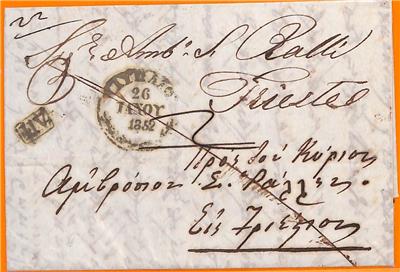 22
Sig.r Amb.o S. Ralli
Trieste
26
ΙΑΝΟΥ
1852
Πρὸς τὸν Κύριον
Ἀμβρόσιον Σ. Ράλλην
Εἰς Τριέστιον